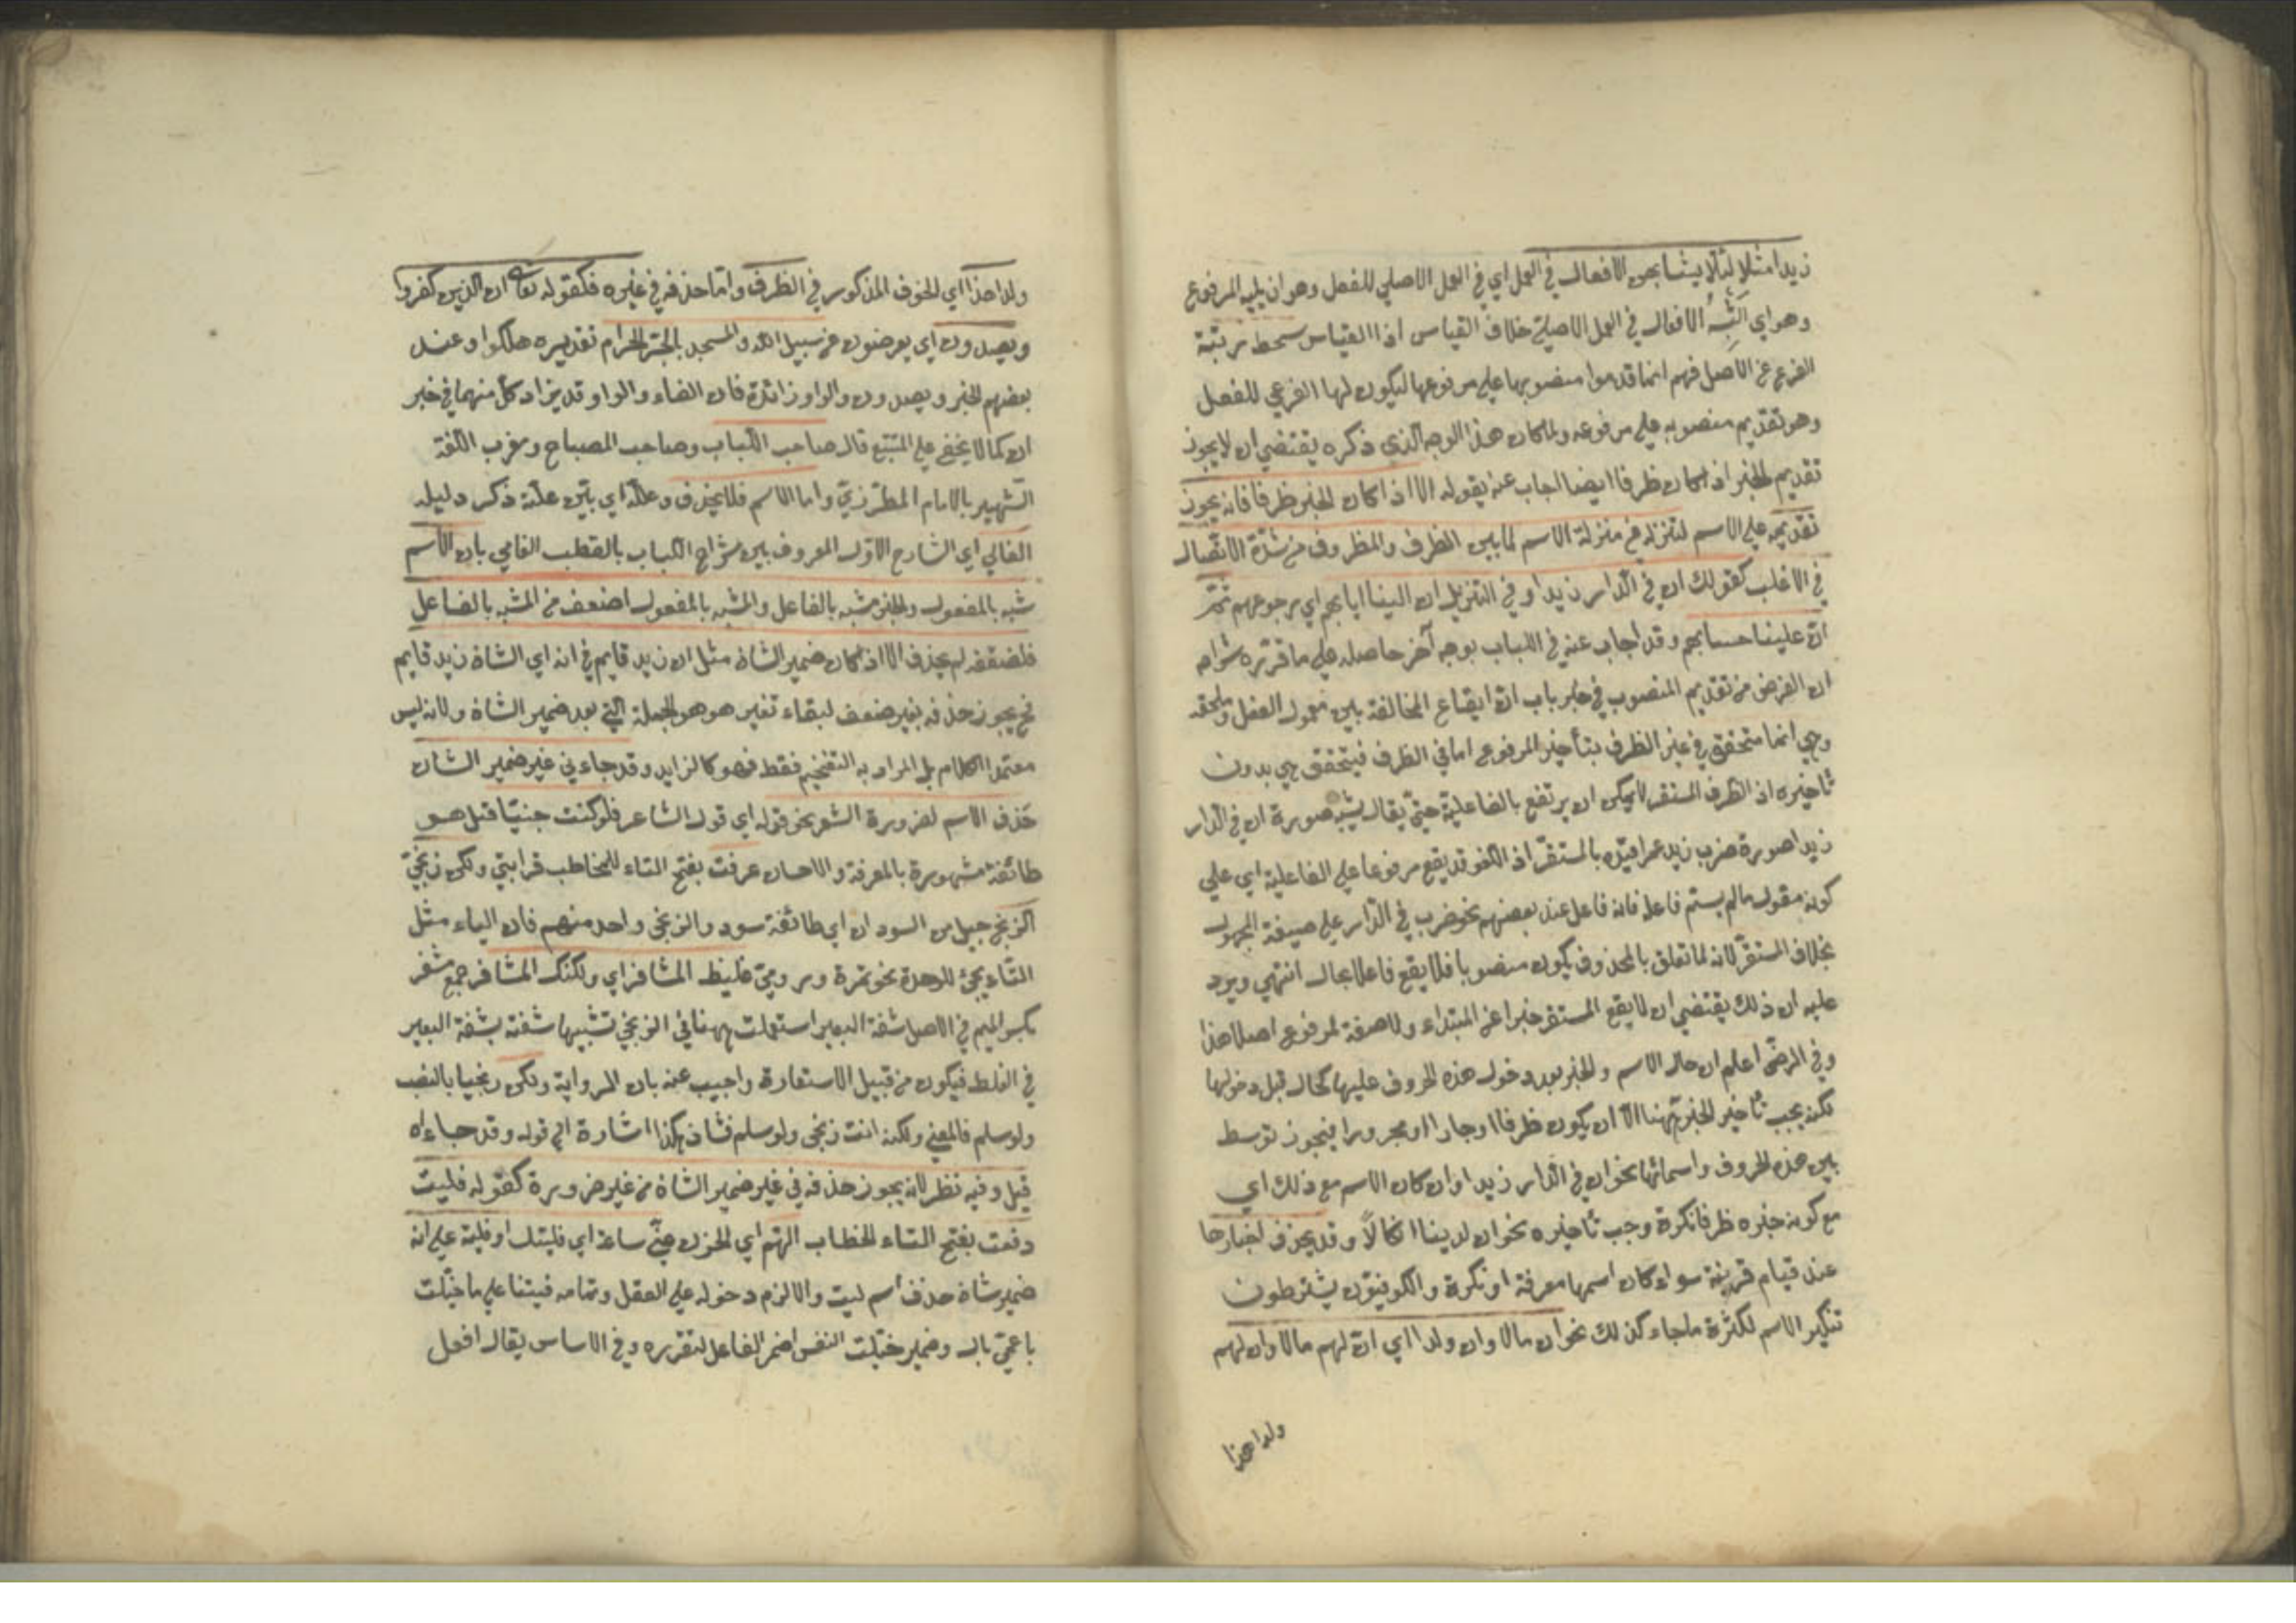 زيدا مثلا لئلا يشابهن الافعال في العمل اي في العمل الاصلي للفعل وهو ان يليه المرفوع
وهو اي الشبه الافعال في العمل الاصلي خلاف القياس اذ القياس سحط مرتبة
الفرع عن الاصل فهم انما قدموا منصوبها علي مرفوعها ليكون لها الفرعي للفعل
وهو تقديم منصوبه علي مرفوعه ولما كان هذا الوجه الذي ذكره يقتضي ان لا يجوز
تقديم الخبر اذا كان ظرفا ايضا اجاب عنه بقوله الا اذا كان الخبر ظرفا فانه يجوز
تقديمه علي الاسم لتنزله من منزلة الاسم لما بين الظرف والمظروف من شدة الاتصال
في الاغلب كقولك ان في الدار زيدا وفي التنزيل ان الينا ايابهم اي رجوعهم ثم
ان علينا حسابهم وقد اجاب عنه في اللباب بوجه آخر حاصله علي ما قرره شراحه
ان الغرض من تقديم المنصوب في خبر باب ان ايقاع المخالفة بين معمول الفعل وملحقه
وهي انما متحقق في غير الظرف بتأخير المرفوع اما في الظرف فيتحقق هي بدون
تأخيره اذ الظرف المستقر لا يمكن ان يرتفع بالفاعلية حتي يقال يشبه صورة ان في الدار
زيدا صورة ضرب زيد عمرا قيده بالمستقر اذ اللغو قد يقع مرفوعا علي الفاعلية اي علي
كونه مقول ما لم يسم فاعله فانه فاعل عند بعضهم نحو ضرب في الدار علي صيغة المجهول
بخلاف المستقر لانه لما تعلق بالمحذوف يكون منصوبا فلا يقع فاعلا بحال انتهي ويرد
عليه ان ذلك يقتضي ان لا يقع المستقر خبرا عن المبتداء ولا صفة لمرفوع اصلا هذا
وفي الرضي اعلم ان حال الاسم والخبر بعد دخول هذه الحروف عليها كحال قبل دخولها
لكنه يجب تأخير الخبر ههنا الا ان يكون ظرفا او جارا او مجرورا فيجوز توسط
بين هذه الحروف واسمائها نحو ان في الدار زيدا وان كان الاسم مع ذلك اي
مع كونه خبره ظرفا نكرة وجب تأخيره نحو ان لدينا انكالا وقد يحذف اخبارها
عند قيام قرينة سواء كان اسمها معرفة او نكرة والكوفيون يشترطون
تنكير الاسم لكثرة ما جاء كذلك نحو ان مالا وان ولدا اي ان لهم مالا وان لهم
ولدا هذا
ولدا هذا اي الحذف المذكور في الظرف واما حذفه في غيره فكقوله تعالى ان الذين كفروا
ويصدون اي يعرضون عن سبيل الله والمسجد الحرام تقديره هلكوا وعند
بعضهم الخبر ويصدون والواو زائدة فان الفاء والواو قد يزاد كل منهما في خبر
ان كما لا يخفي علي المتتبع قال صاحب اللباب وصاحب المصباح ومغرب اللغة
الشهير بالامام المطرزي واما الاسم فلا يحذف وعلله اي بين علة ذكر دليله
الفالي اي الشارح الاول المعروف بين شراح اللباب بالقطب الفالي بان الاسم
شبه بالمفعول والخبر مشبه بالفاعل والمشبه بالمفعول اضعف من المشبه بالفاعل
فلضعفه لم يحذف الا اذا كان ضمير الشان مثل ان زيد قايم في انه اي الشان زيد قايم
نح يجوز حذفه بغير ضعف لبقاء تفسيره وهو الجملة التي بعد ضمير الشان ولانه ليس
معتمدا الكلام بل المراد به التفخيم فقط فهو كالزايد وقد جاء في غير ضمير الشان
حذف الاسم لضرورة الشعر نحو قوله اي قول الشاعر فلو كنت جنيا قبل هو
طائفة مشهورة بالمعرفة والاحسان عرفت بفتح التاء للمخاطب قرابتي ولكن زنجي
الزنج جيل من السودان اي طائفة سود والزنجي واحد منهم فان الياء مثل
التاء يجئ للوحدة نحو تمرة ورومي غليظ المشافر اي ولكنك المشافر جمع مشفر
بكسر الميم في الاصل شفة البعير استعملت ههنا في الزنجي تشبيها شفته بشفة البعير
في الغلظ فيكون من قبيل الاستعارة واجيب عنه بان الرواية ولكن زنجيا بالنصب
ولو سلم فالمعني ولكنه انت زنجي ولو سلم فشاذ هكذا اشارة الي قوله وقد جاء اه
قيل وفيه نظر لانه يجوز حذفه في غير ضمير الشان من غير ضرورة كقوله فليت
دفعت بفتح التاء للخطاب الهم اي الحزن عني ساعة اي فليتك او فليته علي انه
ضمير شان حذف اسم ليت والا لزم دخوله علي الفعل وتمامه فبتنا علي ما خيلت
ناعمي بال وضمير خيلت النفس اضمر الفاعل لتقرره وفي الاساس يقال افعل